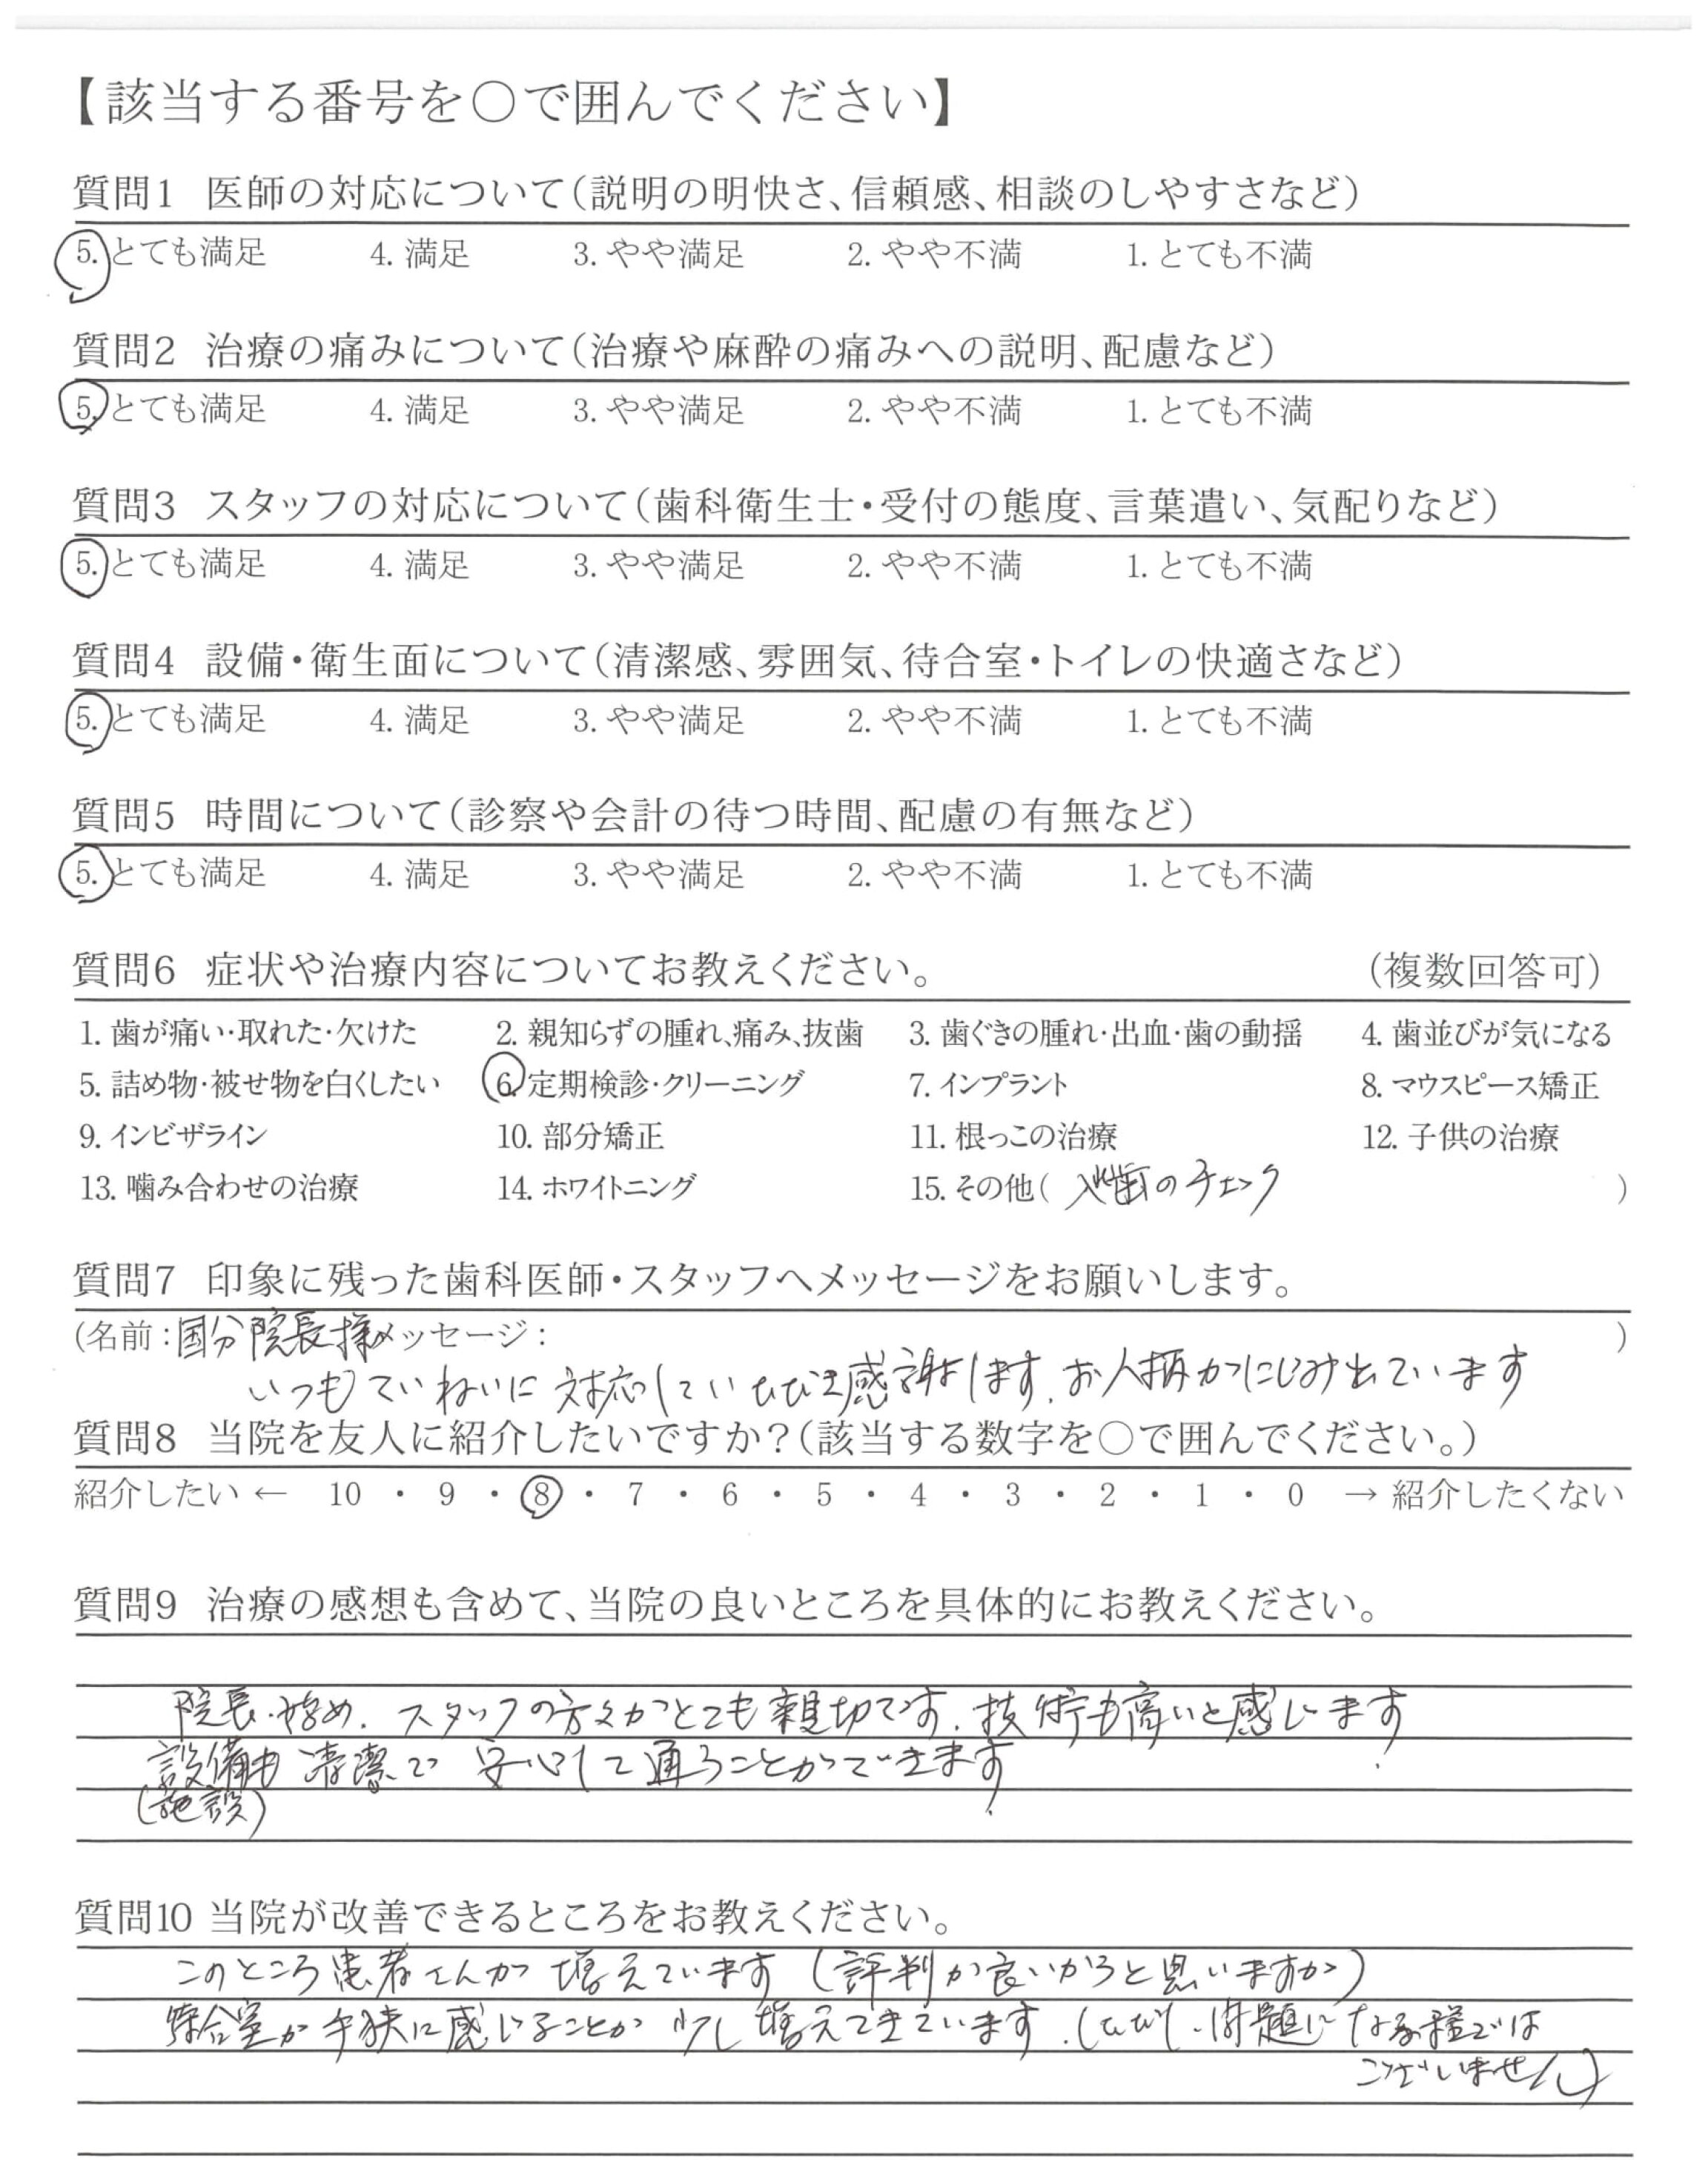 【該当する番号を○で囲んでください】
質問1 医師の対応について(説明の明快さ、信頼感、相談のしやすさなど)
5. とても満足 4. 満足 3. やや満足 2. やや不満 1. とても不満
質問2 治療の痛みについて(治療や麻酔の痛みへの説明、配慮など)
5. とても満足 4. 満足 3. やや満足 2. やや不満 1. とても不満
質問3 スタッフの対応について(歯科衛生士・受付の態度、言葉遣い、気配りなど)
5. とても満足 4. 満足 3. やや満足 2. やや不満 1. とても不満
質問4 設備・衛生面について(清潔感、雰囲気、待合室・トイレの快適さなど)
5. とても満足 4. 満足 3. やや満足 2. やや不満 1. とても不満
質問5 時間について(診察や会計の待つ時間、配慮の有無など)
5. とても満足 4. 満足 3. やや満足 2. やや不満 1. とても不満
質問6 症状や治療内容についてお教えください。 (複数回答可)
1. 歯が痛い・取れた・欠けた 2. 親知らずの腫れ、痛み、抜歯 3. 歯ぐきの腫れ・出血・歯の動揺 4. 歯並びが気になる
5. 詰め物・被せ物を白くしたい 6. 定期検診・クリーニング 7. インプラント 8. マウスピース矯正
9. インビザライン 10. 部分矯正 11. 根っこの治療 12. 子供の治療
13. 噛み合わせの治療 14. ホワイトニング 15. その他( 入歯のチェック )
質問7 印象に残った歯科医師・スタッフへメッセージをお願いします。
(名前:国分院長様メッセージ: )
いつもていねいに対応していただき感謝します。お人柄がにじみ出ています
質問8 当院を友人に紹介したいですか?(該当する数字を○で囲んでください。)
紹介したい ← 10 ・ 9 ・ 8 ・ 7 ・ 6 ・ 5 ・ 4 ・ 3 ・ 2 ・ 1 ・ 0 → 紹介したくない
質問9 治療の感想も含めて、当院の良いところを具体的にお教えください。
院長始め、スタッフの方々がとても親切です。技術も高いと感じます。
設備も清潔で安心して通うことができます。
(施設)
質問10 当院が改善できるところをお教えください。
このところ患者さんが増えています(評判が良いからと思いますが)
待合室が手狭に感じることが少し増えてきています。(ただし、問題になる程では
ございません)